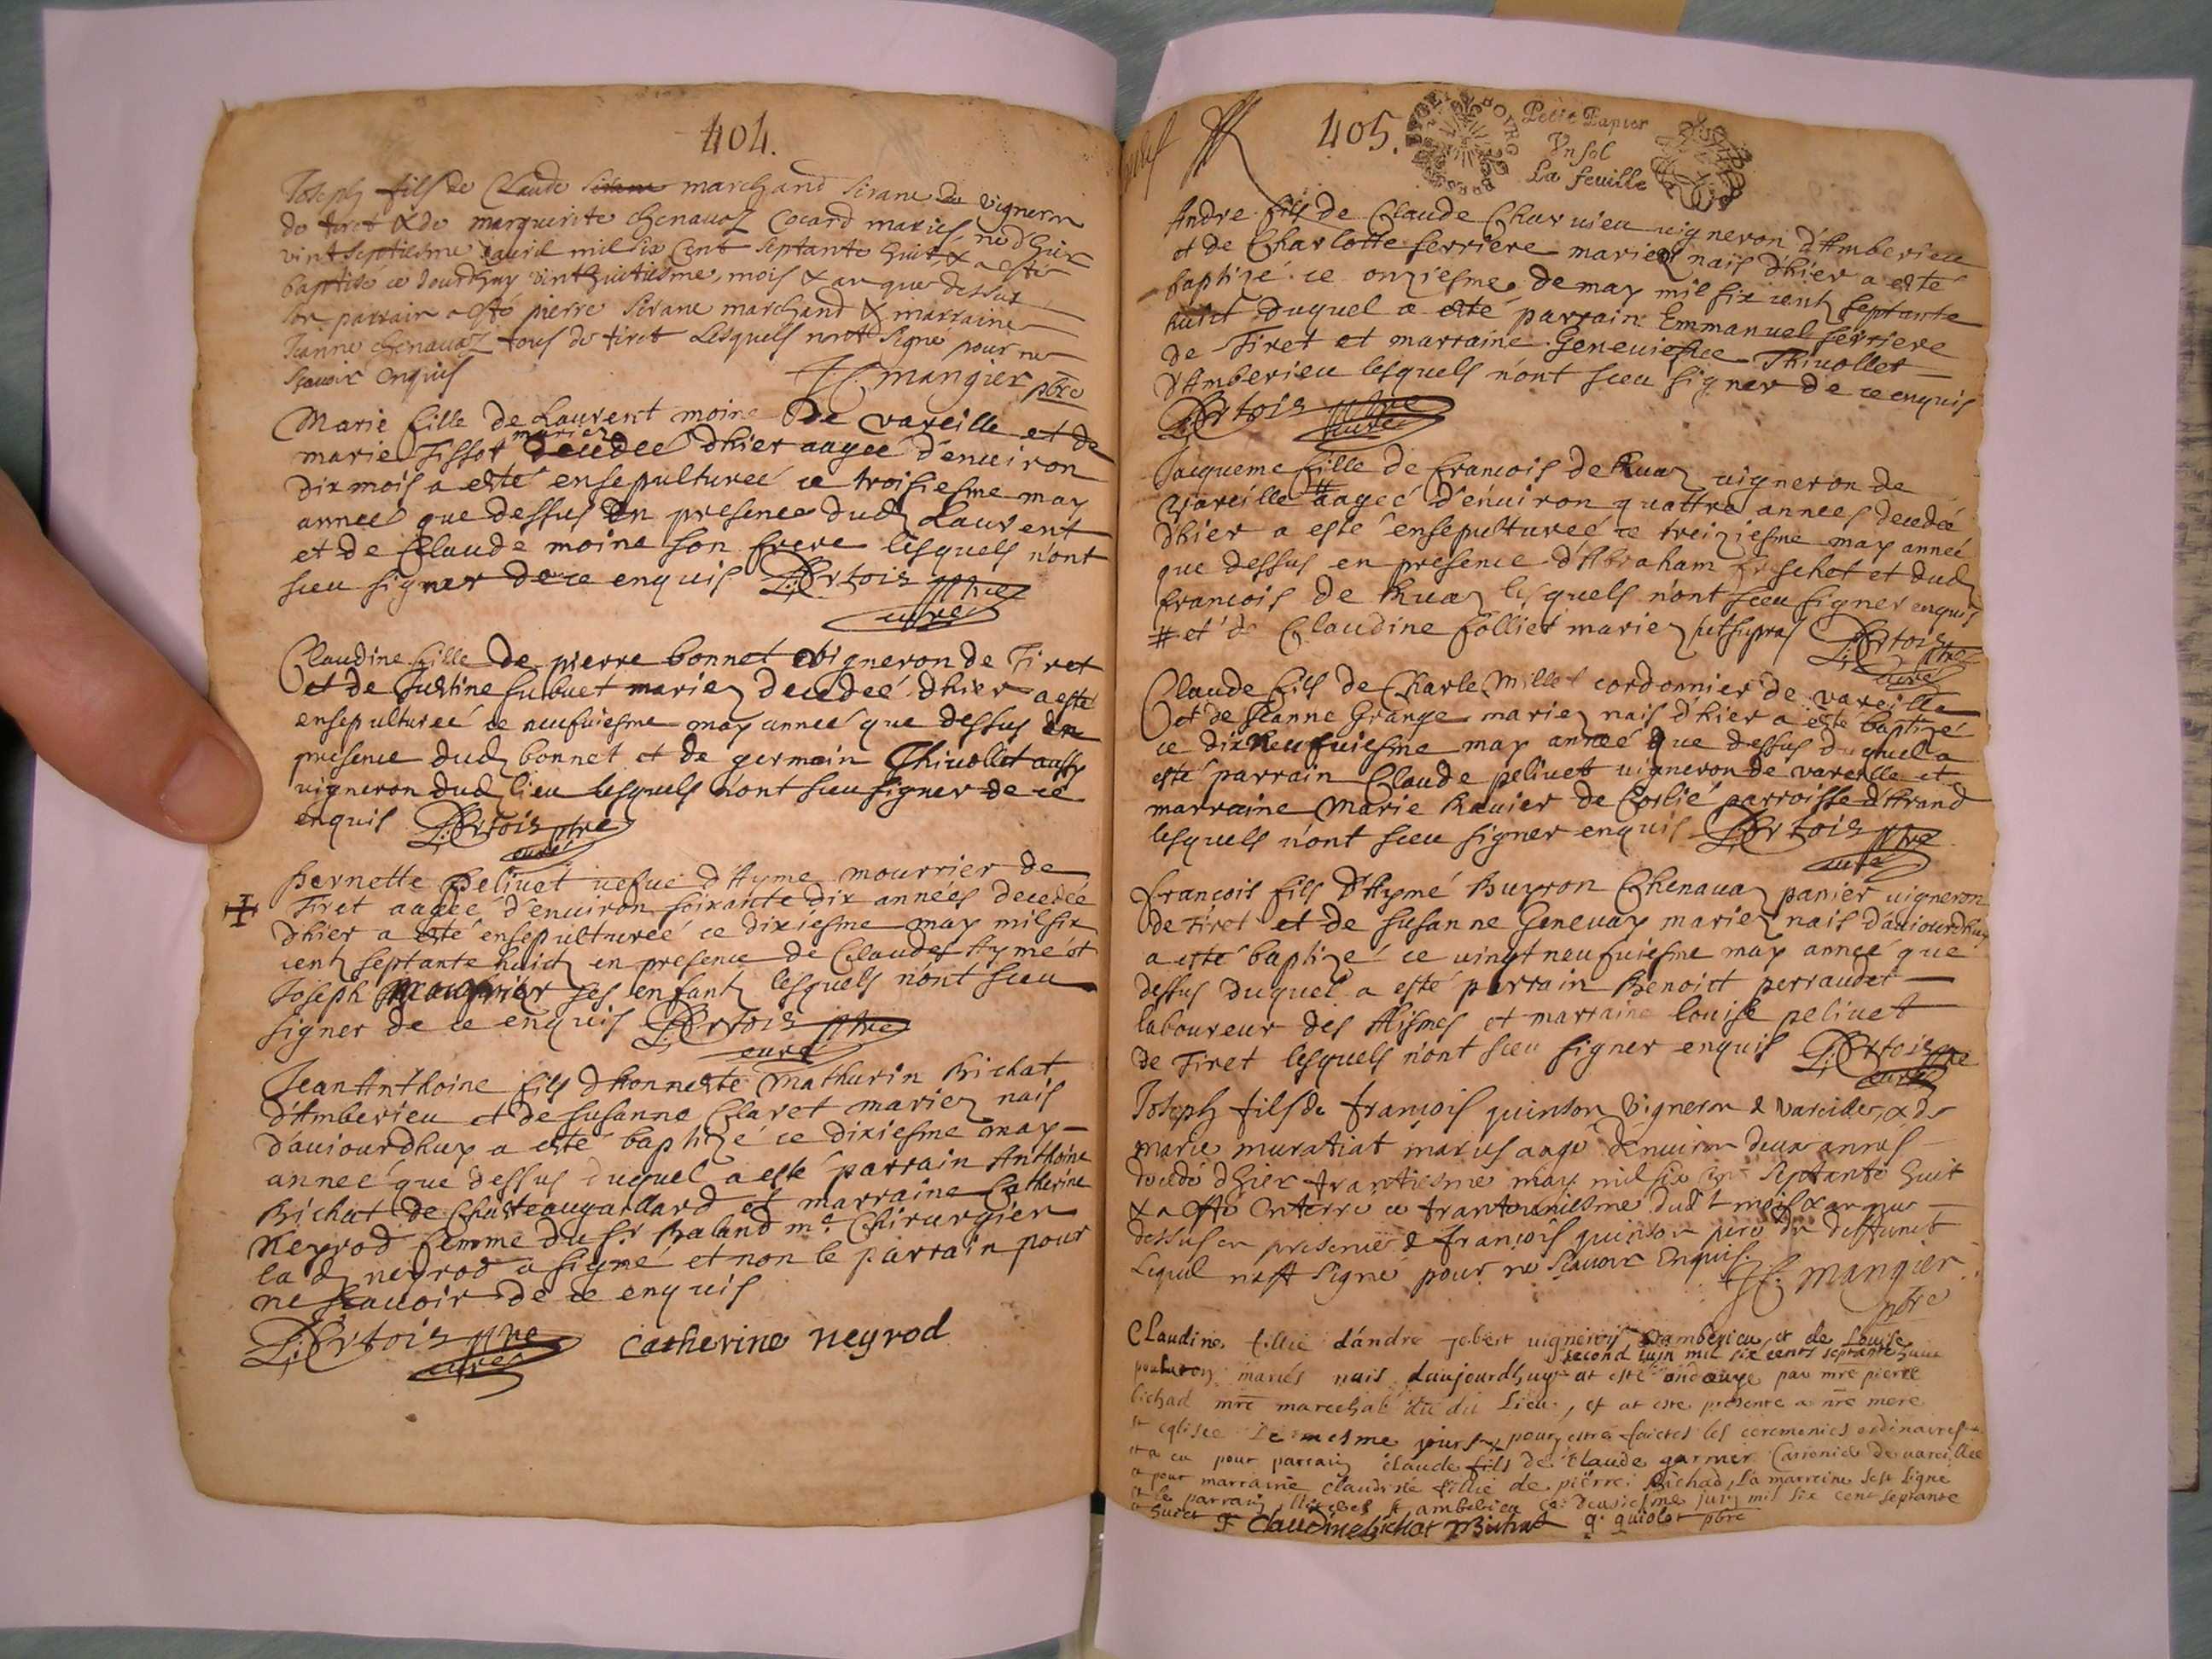 404.
Joseph fils de Claude marchand Sirane vigneron
de tiret & de marguerite chenauaz Cocard mariés né d'hier
vint septiesme auril mil six Cent septante huit, & a esté
baptisé ce jourdhuy vinthuitiesme, mois & an que dessus
son parrain a esté pierre Sirane marchand & marraine
Jeanne chenauaz tous de tiret Lesquels n'ont signé pour ne
sçauoir enquis
Mangier pbre
Marie fille de Laurent moine de vareille et de
marie Tissot mariez decedeé dhier aageé d'enuiron
dix mois a esté ensepultureé ce troisiesme may
anneé que dessus En presence dud Laurent
et de Claude moine son frere lesquels n'ont
sceu signer de ce enquis D: Ortois ptre
curé
Claudine fille de pierre bonnet vigneron de Tiret
et de Justine fubuet mariez decedeé dhier a esté
ensepultureé ce neufuiesme may anneé que dessus en
presence dud bonnet et de germain Thiuollet aussy
vigneron dud lieu lesquels n'ont sceu signer de ce
enquis D: Ortois ptre
curé
Pernette peliuet uefue d'Ayme mourrier de
Tiret aageé d'enuiron soixante dix années decedeé
dhier a esté ensepultureé ce dixiesme may mil six
cent septante huict en presence de Claude Aymé et
Joseph mourrier ses enfantz lesquels n'ont sceu
signer de ce enquis D: Ortois ptre
curé
Jean Anthoine fils d'honneste Mathurin Bichat
d'Amberieu et de Susanne Claret mariez nais
d'auiourdhuy a esté baptizé ce dixiesme may
anneé que dessus duquel a esté parrain Anthoine
Bichat de Chasteaugaillard et marraine Catherine
Neyrod femme du sr Baland me Chirurgien
la d neyrod a signé et non le parrain pour
ne scauoir de ce enquis
D: Ortois ptre Catherine neyrod
curé
405.
Petit Papier
Un sol
La feuille
Andre fils de Claude Charuieu uigneron d'Amberieu
et de Charlotte ferriere mariez nais d'hier a esté
baptizé ce onziesme de may mil six cent septante
huict duquel a esté parrain Emmanuel ferriere
de Tiret et marraine Geneuiefue Thiuollet
d'Amberieu lesquels n'ont sceu signer de ce enquis
D: Ortois ptre
curé
Jacqueme fille de francois de Ruaz uigneron de
Vareille # aageé d'enuiron quattre annees decedeé
d'hier a esté ensepultureé ce treiziesme may anneé
que dessus en presence d'Abraham freschet et dud
francois de Ruaz lesquels n'ont sceu signer enquis
# et de Claudine folliet mariez ut supra D: Ortois ptre
curé
Claude fils de Charle Millet cordonnier de vareille
et de Jeanne Grange mariez nais d'hier a esté baptizé
ce dix neufuiesme may anneé que dessus duquel a
esté parrain Claude peliuet uigneron de vareille et
marraine Marie Rauier de Corlié parroisse d'Arand
lesquels n'ont sceu signer enquis D: Ortois ptre
curé
francois fils d'Aymé Buyron Chenauaz panier uigneron
de Tiret et de Susanne Geneuay mariez nais d'auiourdhuy
a esté baptizé ce uingt neufuiesme may anneé que
dessus duquel a esté parrain Benoict perraudet
laboureur des Alismes et marraine louise peliuet
de Tiret lesquels n'ont sceu signer enquis D: Ortois ptre
curé
Joseph fils de françois quinson Vigneron de Vareilles, & de
marie muratiat mariés aagé d'enuiron deux annés
decedé d'hier trantiesme may mil six cent septante huit
& a esté Enterré ce trante uniesme dudt mois & an que
dessus en presence de françois quinson pere du deffunct
Lequel n'ast signé pour ne sçauoir Enquis.
Mangier
pbre
Claudine fillie d'andre jobert uigneron d'amberieu, et de Louise
second iuin mil six cents septante huict
mariés nais daujourdhuy at esté ondoyé par mre pierre
bichad mre mareschal du dit Lieu, et at esté presente a nre mere
st eglisee le mesme jours pour estre faictes les ceremonies ordinaires
et a eu pour parrain Claude fils de Claude garnier de uareille
et pour marraine Claudine fillie de pierre Bichad, La marreine sest signé
et le parrain amberieu ce deusiesme juin mil six cent septante
et huict Claudine bichat Bichat g. quiolet pbre